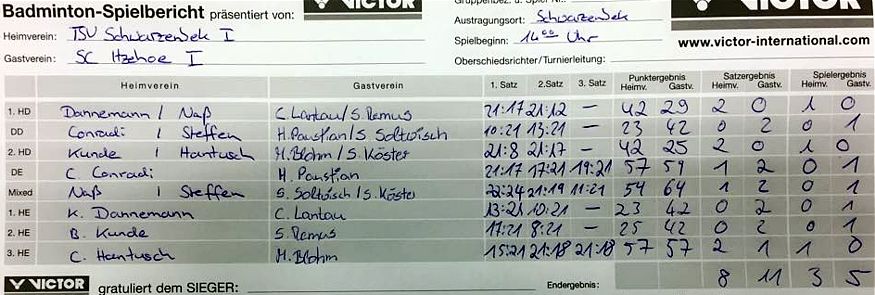 Badminton-Spielbericht präsentiert von: VICTOR
Heimverein: TSV Schwarzenbek I
Gastverein: SC Itzehoe I
Austragungsort: Schwarzenbek
Spielbeginn: 14 00 Uhr
Oberschiedsrichter/Turnierleitung:
www.victor-international.com
Heimverein Gastverein 1. Satz 2. Satz 3. Satz Punktergebnis Heimv. Gastv. Satzergebnis Heimv. Gastv. Spielergebnis Heimv. Gastv.
1. HD Dannemann / Naß C. Lantau/S. Remus 21:17 21:12 — 42 29 2 0 1 0
DD Conradi / Steffen H. Paustian/S. Soltwisch 10:21 13:21 — 23 42 0 2 0 1
2. HD Kunde / Hantusch M. Blohm/S. Köster 21:8 21:17 — 42 25 2 0 1 0
DE C Conradi H. Paustian 21:17 17:21 19:21 57 59 1 2 0 1
Mixed Naß / Steffen S. Soltwisch/S. Köster 22:24 21:19 11:21 54 64 1 2 0 1
1. HE K. Dannemann C. Lantau 13:21 10:21 — 23 42 0 2 0 1
2. HE B. Kunde S. Remus 17:21 8:21 — 25 42 0 2 0 1
3. HE C. Hantusch M. Blohm 15:21 21:18 21:18 57 57 2 1 1 0
VICTOR gratuliert dem SIEGER: Endergebnis: 8 11 3 5